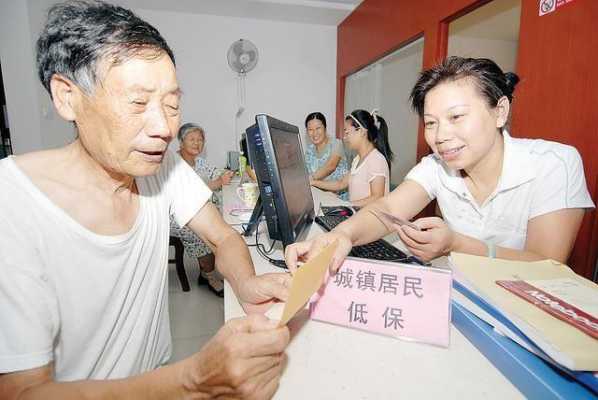 城镇居民
低保
Notebook